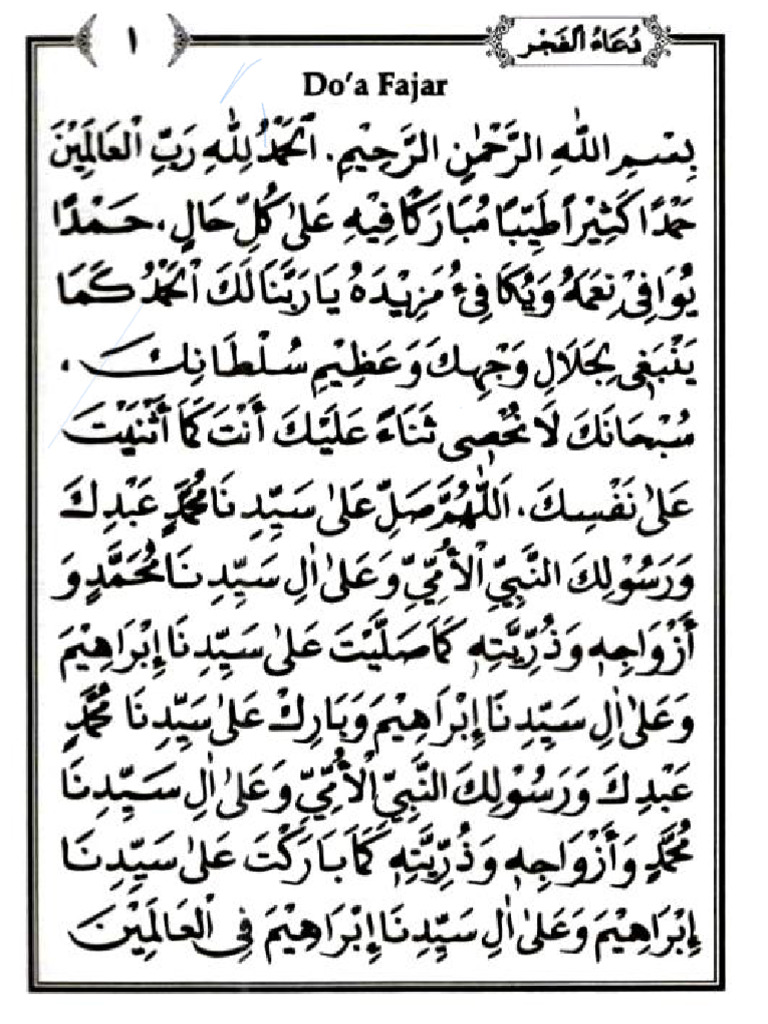 دُعَاءُ الْفَجْرِ
١
Do'a Fajar
بِسْمِ اللهِ الرَّحْمٰنِ الرَّحِيْمِ. اَلْحَمْدُ لِلّٰهِ رَبِّ الْعَالَمِيْنَ
حَمْدًا كَثِيْرًا طَيِّبًا مُبَارَكًا فِيْهِ عَلىٰ كُلِّ حَالٍ، حَمْدًا
يُوَافِيْ نِعَمَهُ وَيُكَافِئُ مَزِيْدَهُ يَا رَبَّنَا لَكَ الْحَمْدُ كَمَا
يَنْبَغِي لِجَلَالِ وَجْهِكَ وَعَظِيْمِ سُلْطَانِكَ،
سُبْحَانَكَ لَا نُحْصِي ثَنَاءً عَلَيْكَ أَنْتَ كَمَا أَثْنَيْتَ
عَلىٰ نَفْسِكَ، اَللّٰهُمَّ صَلِّ عَلىٰ سَيِّدِنَا مُحَمَّدٍ عَبْدِكَ
وَرَسُوْلِكَ النَّبِيِّ الْأُمِّيِّ وَعَلىٰ اٰلِ سَيِّدِنَا مُحَمَّدٍ وَ
أَزْوَاجِهِ وَذُرِّيَّتِهِ كَمَا صَلَّيْتَ عَلىٰ سَيِّدِنَا إِبْرَاهِيْمَ
وَعَلىٰ اٰلِ سَيِّدِنَا إِبْرَاهِيْمَ وَبَارِكْ عَلىٰ سَيِّدِنَا مُحَمَّدٍ
عَبْدِكَ وَرَسُوْلِكَ النَّبِيِّ الْأُمِّيِّ وَعَلىٰ اٰلِ سَيِّدِنَا
مُحَمَّدٍ وَأَزْوَاجِهِ وَذُرِّيَّتِهِ كَمَا بَارَكْتَ عَلىٰ سَيِّدِنَا
إِبْرَاهِيْمَ وَعَلىٰ اٰلِ سَيِّدِنَا إِبْرَاهِيْمَ فِي الْعَالَمِيْنَ